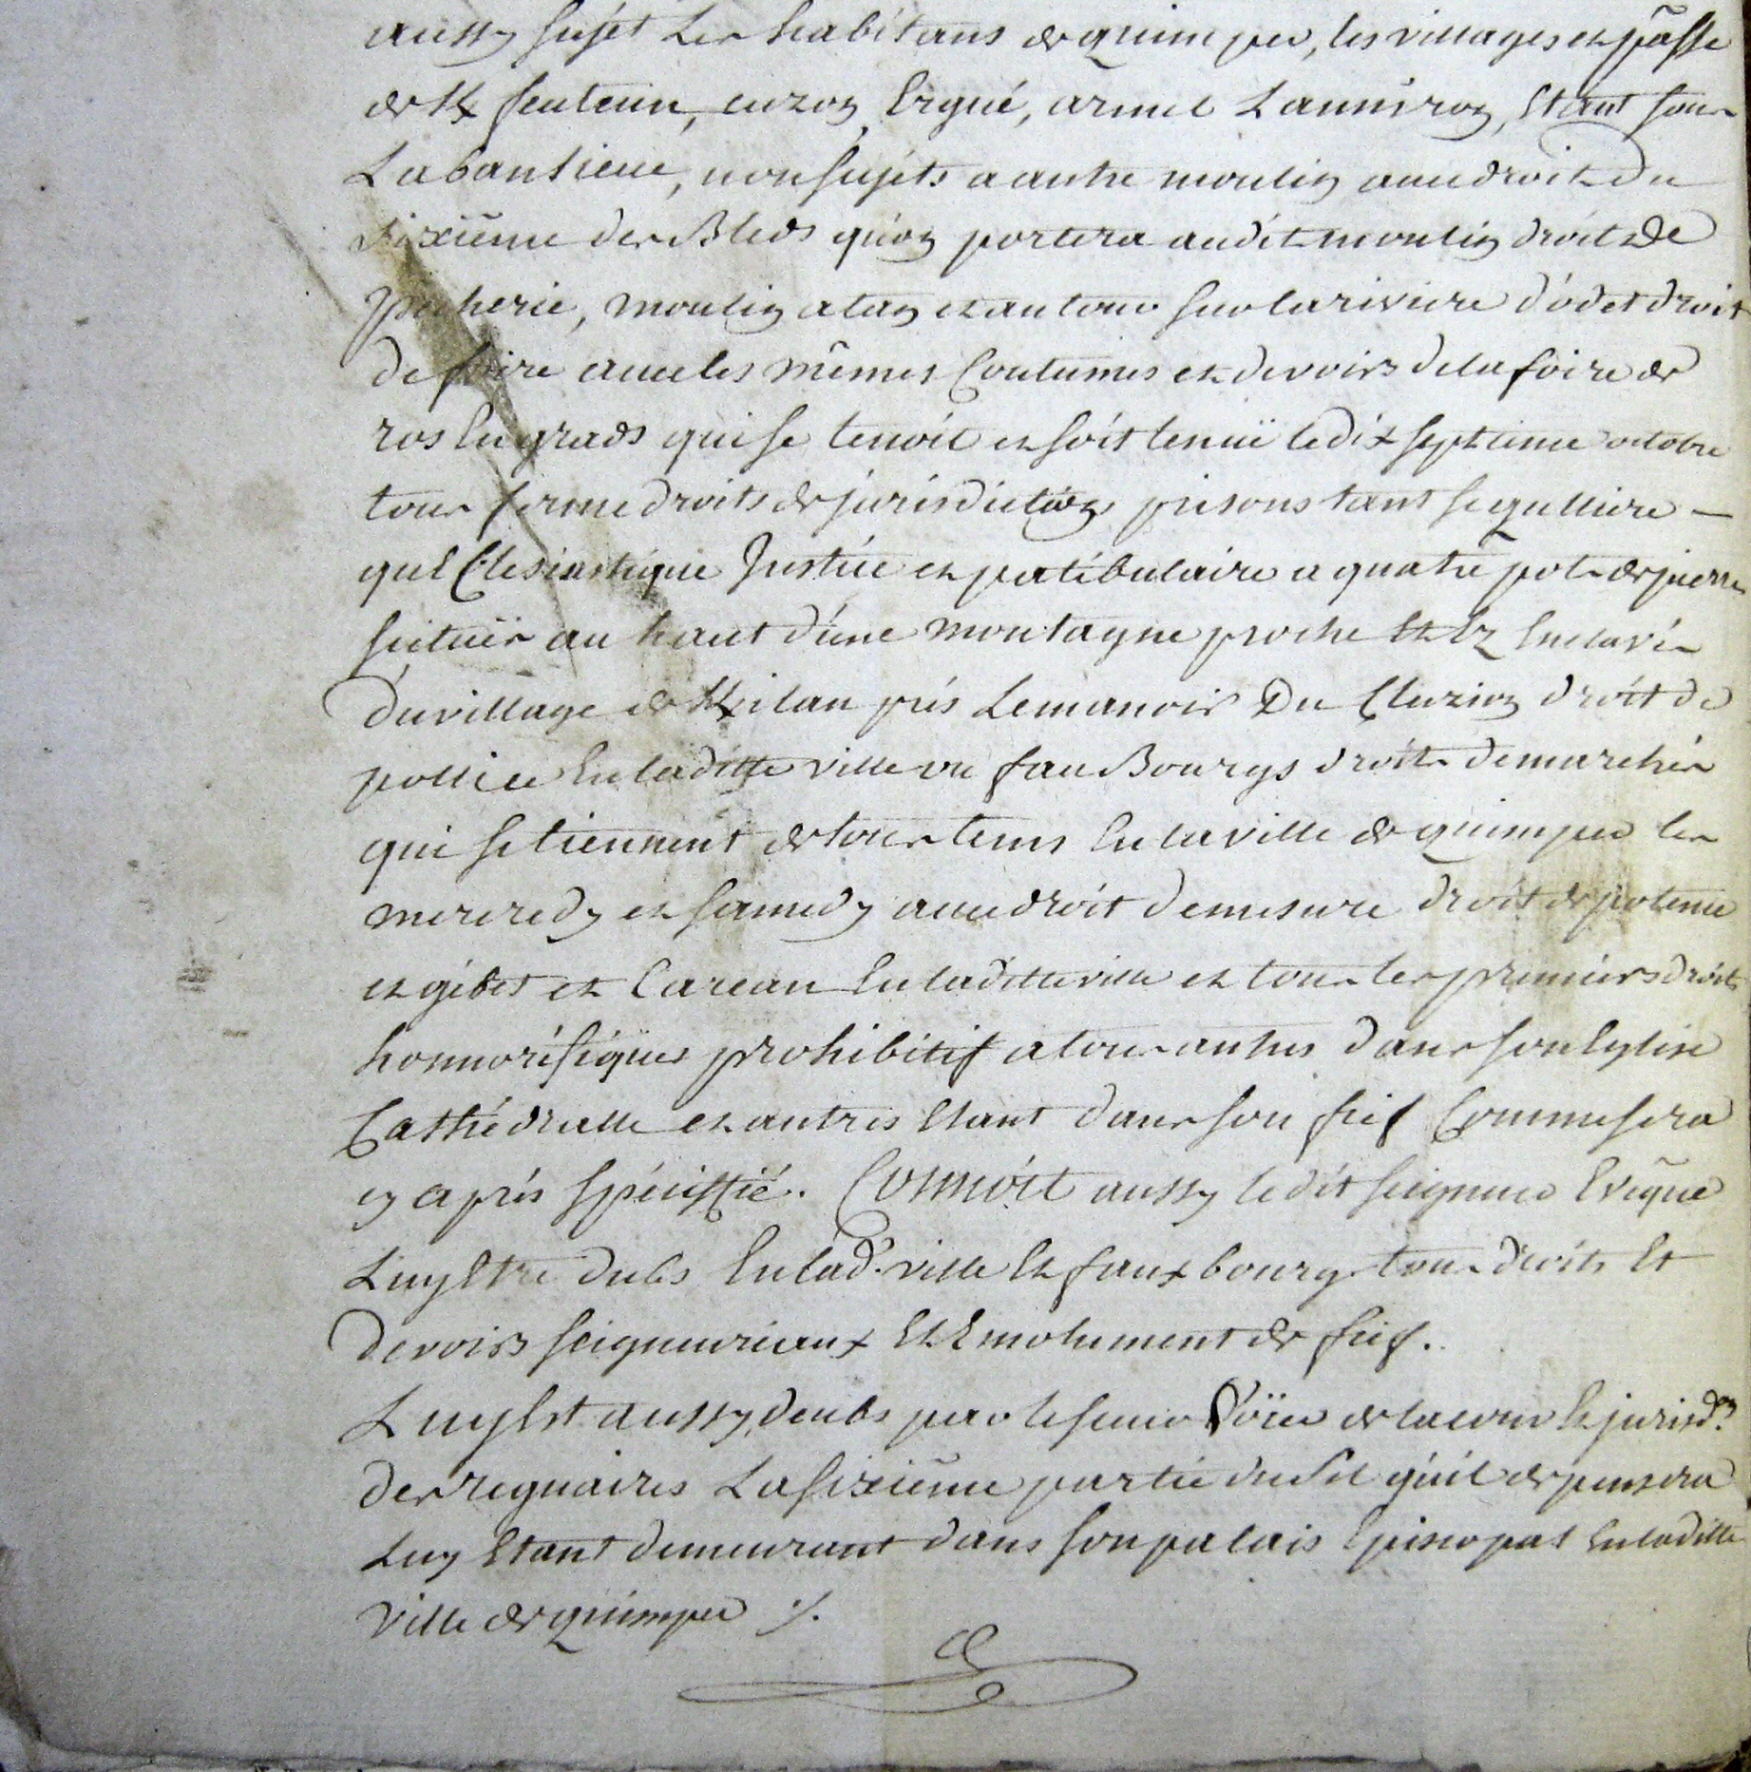 aussy sujet les habitans de quimper, les villages et pâsse
de K/ feuteun, cuzon, Ergué, armel Lanniron, Etant sous
La banlieue, non sujets a autre moulin avec droit du
sixiême des Bleds qu'on portera audit moulin droit De
pecherie, moulin a tan et autour sur la riviere d'odet droit
de foire avec les mêmes Coutumes et devoirs de la foire de
ros En grads qui se tenoit et soit tenuë le dix septieme octobre
tour ferme droits de jurisdiction prisons tant segulliere -
qu'Eclesiastique Justice et patibulaire a quatre pots de pierre
situës au haut d'une montagne proche Et Ez Enclavés
du village de K/ilan prés Le manoir Du Cluziou droit de
pollice En laditte ville ou fauBourgs droits de marchés
qui se tiennent de tous tems En la ville de quimper les
mercredy et samedy avec droit de mesure droit de potence
et gibet et Carcan En laditte ville et tous les premiers droits
honnorifiques prohibitif a tous autres dans son Eglise
Cathédralle et autres Etant dans son fief Comme sera
cy aprés spéciffié. Connoit aussy le dit seigneur Evêque
Luy Etre dubs En lad. ville Et fauxbourgs tous droits Et
devoirs seigneuriaux Et Emolument de fief.
Luy Est aussy deubs par le sieur Voïer de la cour Et jurisd.on
des reguaires La sixiême partie du sel qu'il depensera
Luy Etant demeurant dans son palais Episcopal En laditte
ville de quimper ./.